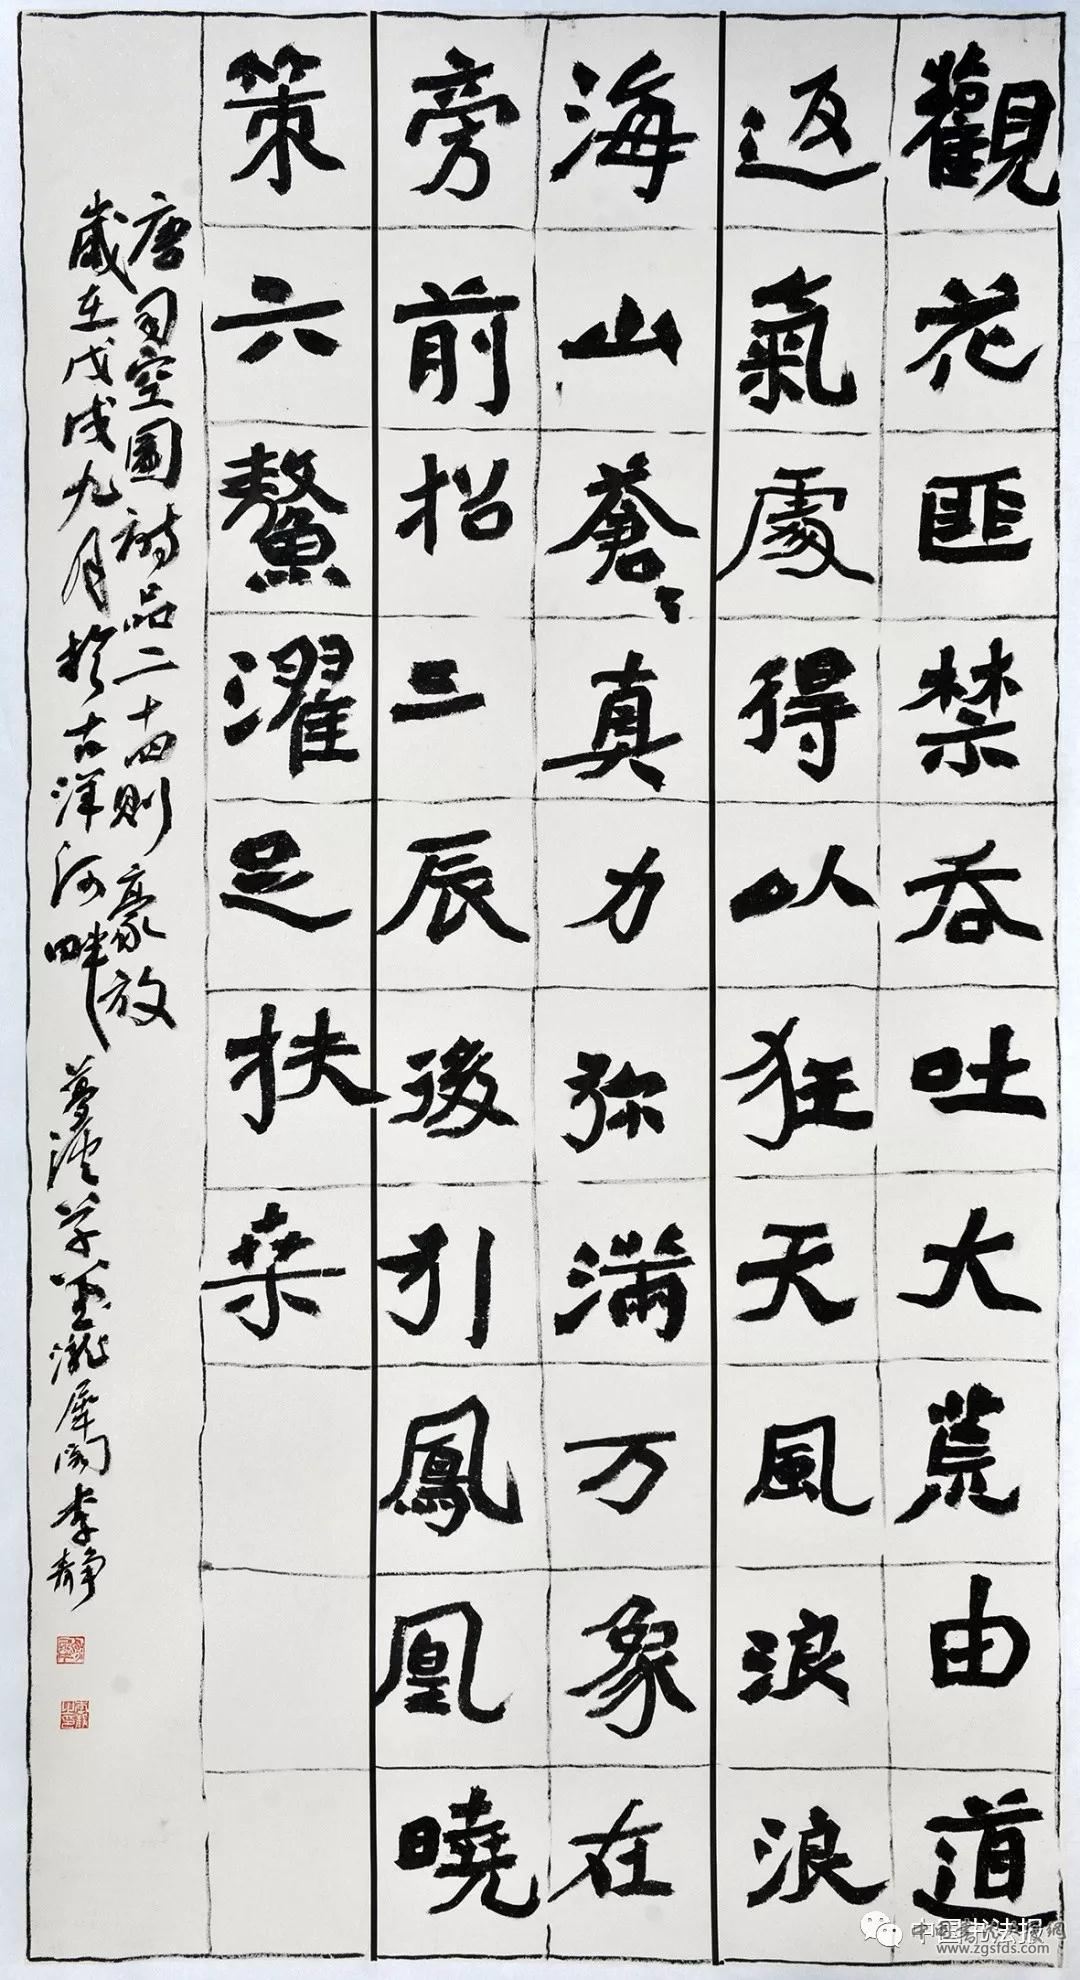 觀花匪禁吞吐大荒由道
返氣處得以狂天風浪浪
海山蒼々真力弥滿万象在
旁前招三辰後引鳳凰曉
策六鰲濯足扶桑
唐司空圖詩品二十四則豪放
歲在戊戌九月於古洋河畔 李静
中国书法报
www.zgsfds.com